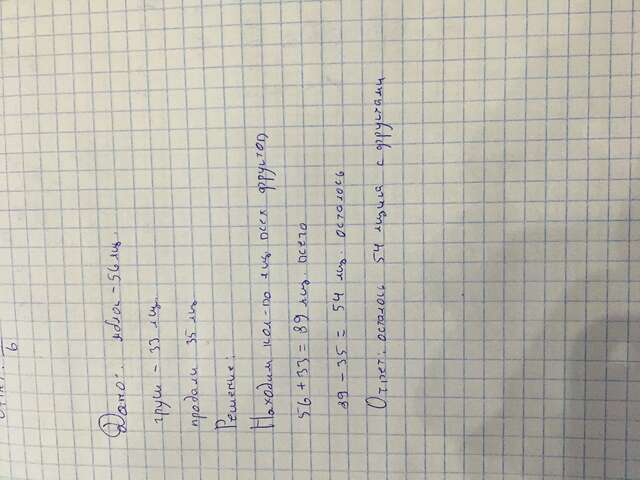 6
Дано: яблок - 56 ящ.
груш - 33 ящ.
продали 35 ящ
Решение:
Находим кол-во ящ всех фруктов
56 + 33 = 89 ящ. всего
89 - 35 = 54 ящ. осталось
Ответ: осталось 54 ящика с фруктами